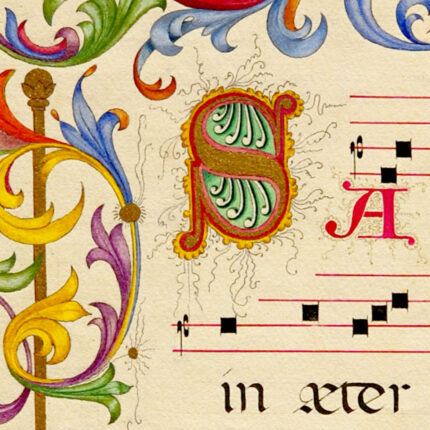 SA
in æter